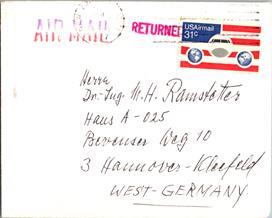 AIR MAIL
RETURNED
USAirmail
31c
Herrn
Dr.-Ing. M. H. Ramstetter
Haus A-025
Bevenser Weg 10
3 Hannover-Kleefeld
WEST-GERMANY